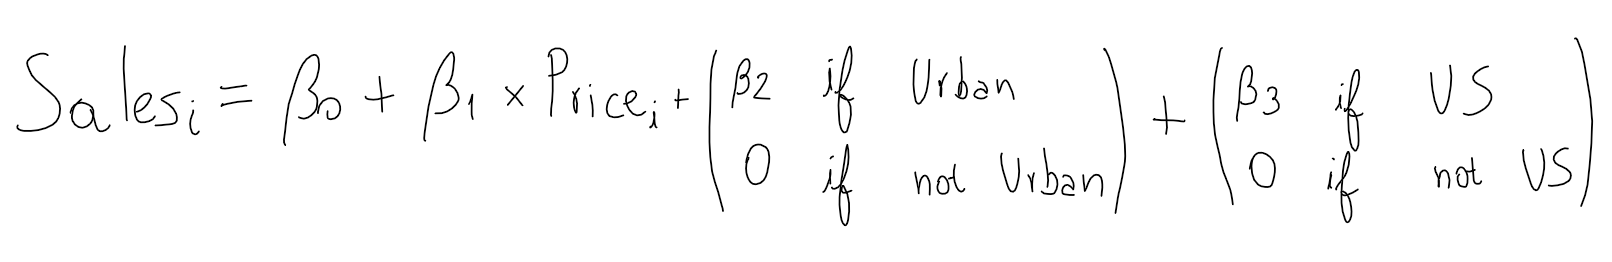 Sales_i = β_0 + β_1 × Price_i + (β2 if Urban
0 if not Urban) + (β3 if US
0 if not US)